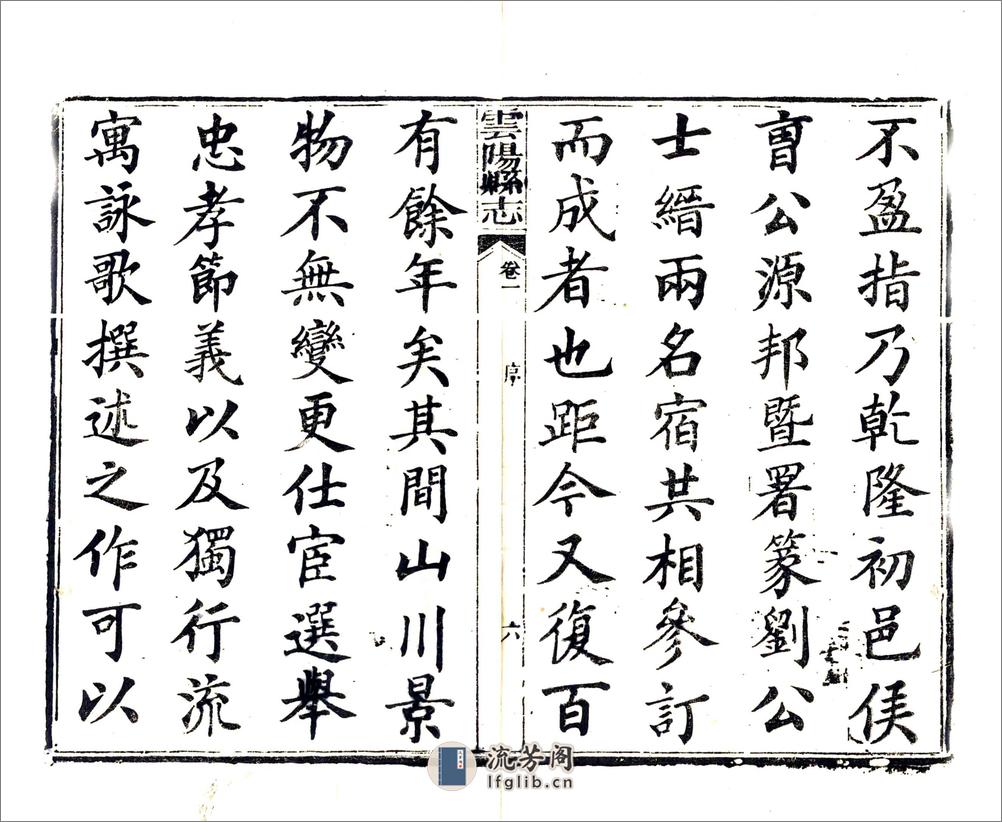 不盈指乃乾隆初邑侯
曹公源邦暨署篆劉公
士縉兩名宿共相參訂
而成者也距今又復百
雲陽縣志
卷一
序
六
有餘年矣其間山川景
物不無變更仕宦選舉
忠孝節義以及獨行流
寓詠歌撰述之作可以
流芳阁
lfglib.cn